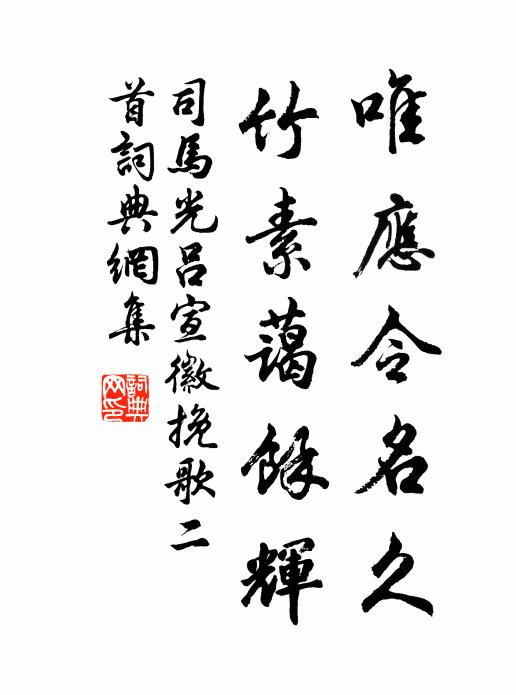 唯應令名久
竹素藹餘輝
司馬光呂宣徽挽歌二
首詞典網集
詞典網印